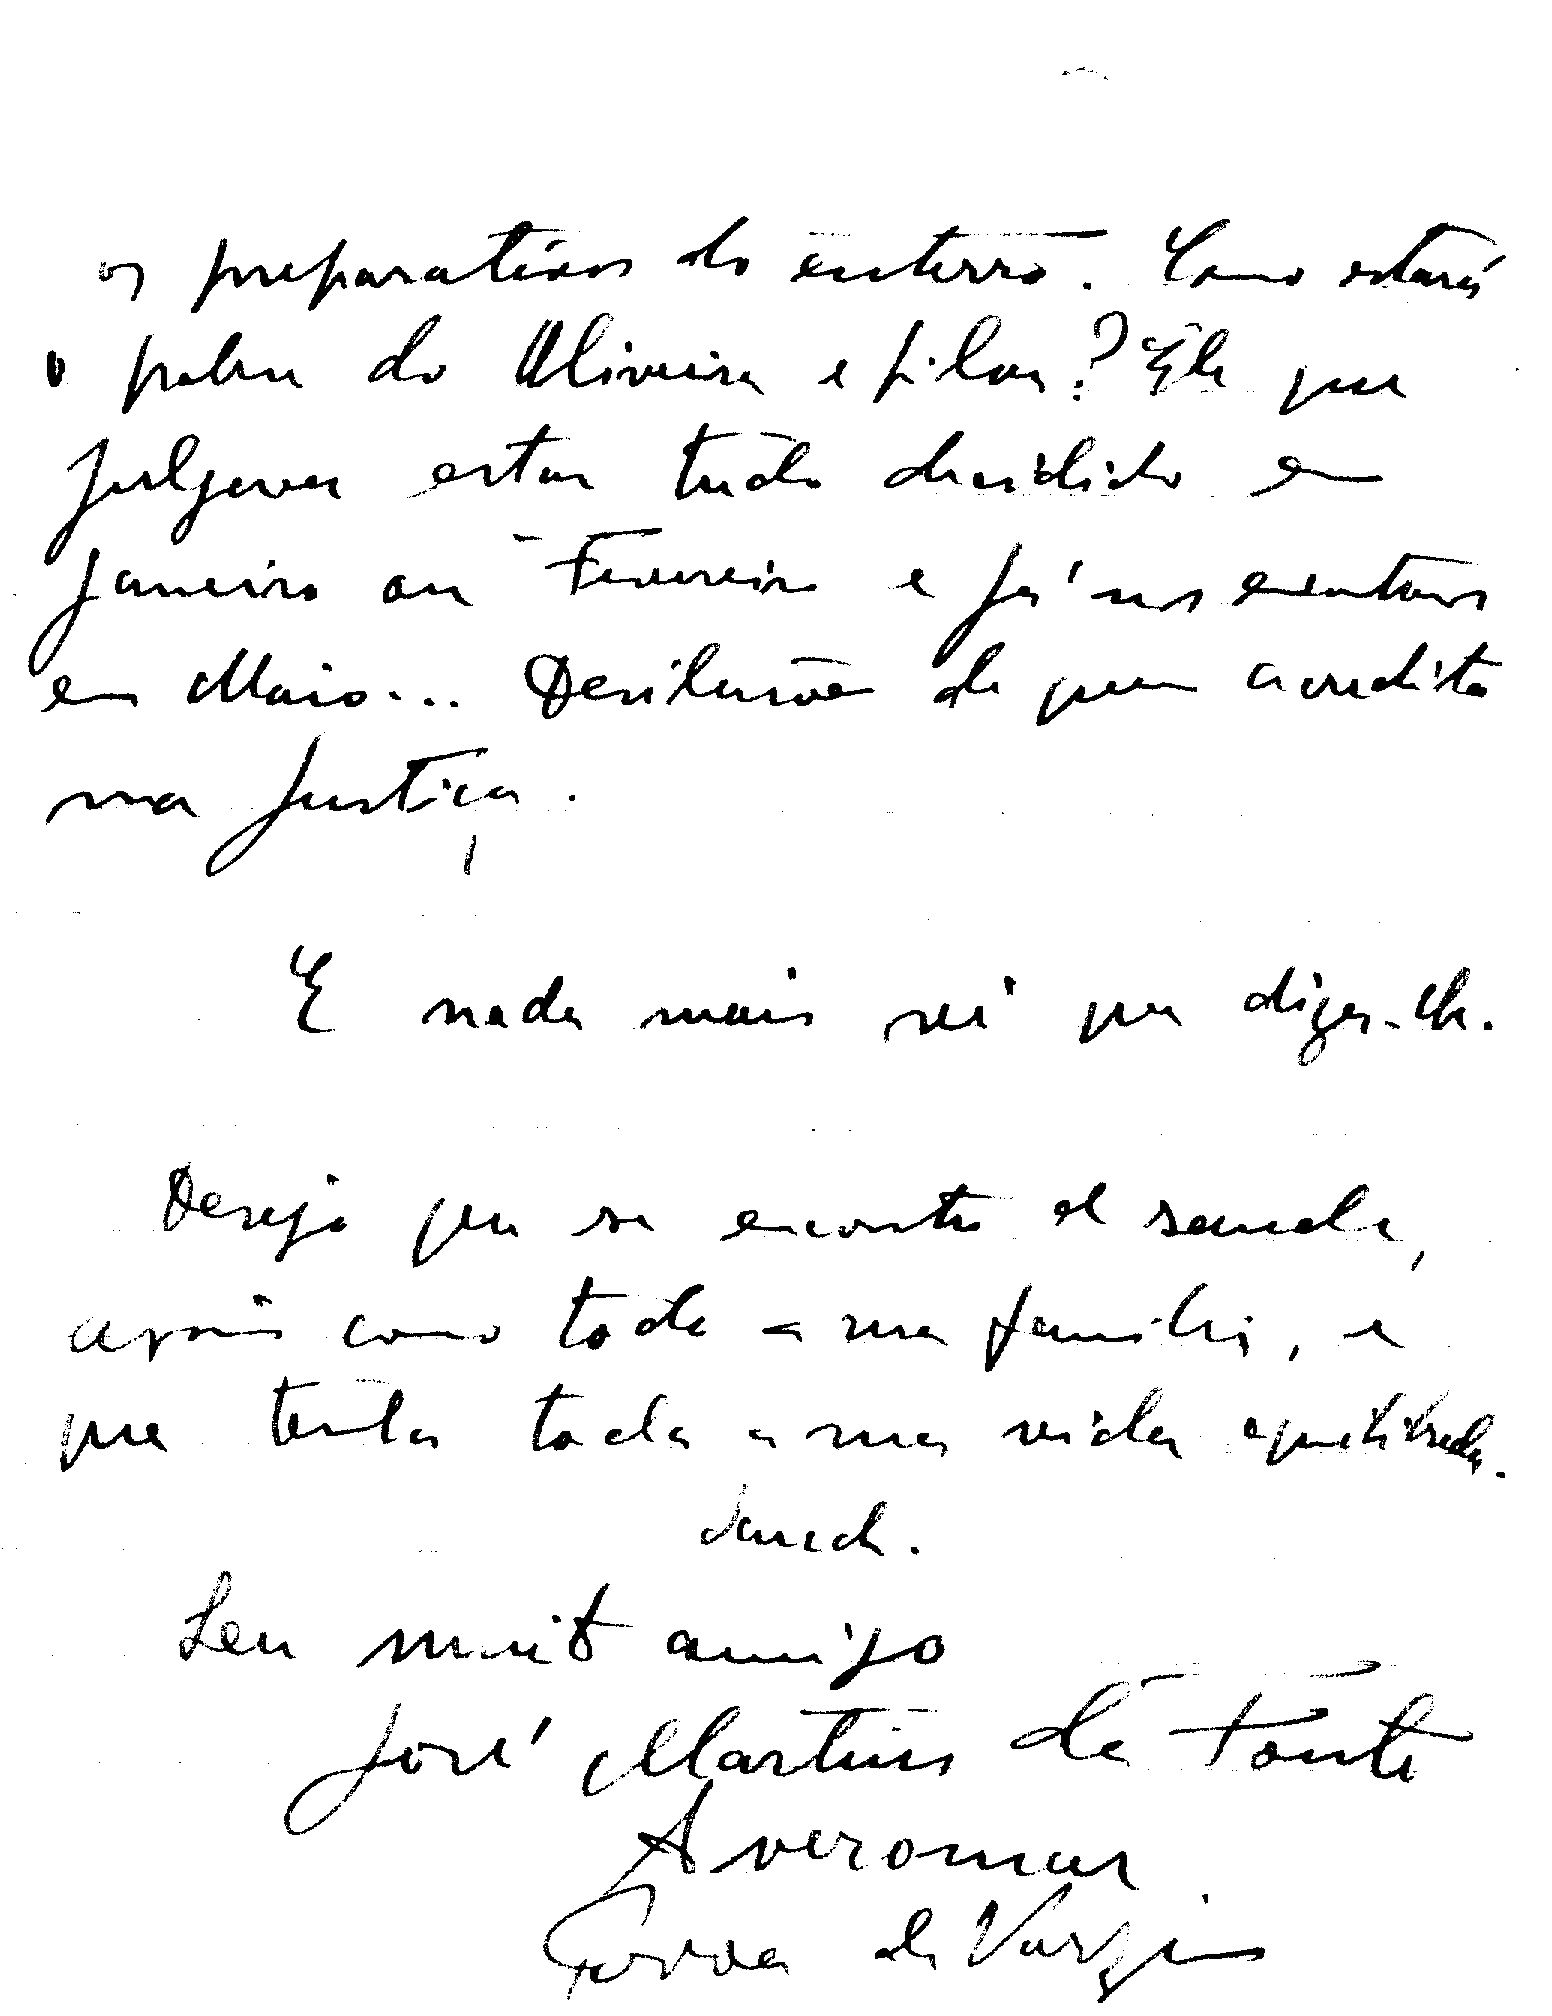 os preparativos do enterro. Como estará
o pobre do Oliveira e filha? Ele que
julgava estar tudo decidido em
Janeiro ou Fevereiro e já nos encontramos
em Maio... Desilusões de quem acredita
na Justiça.
E nada mais sei que dizer-lhe.
Desejo que se encontre de saude,
assim como toda a sua familia, e
que tenha toda a sua vida equilibrada.
Saude.
Seu muito amigo
José Martins da Fonte
Averomar
Póvoa de Varzim